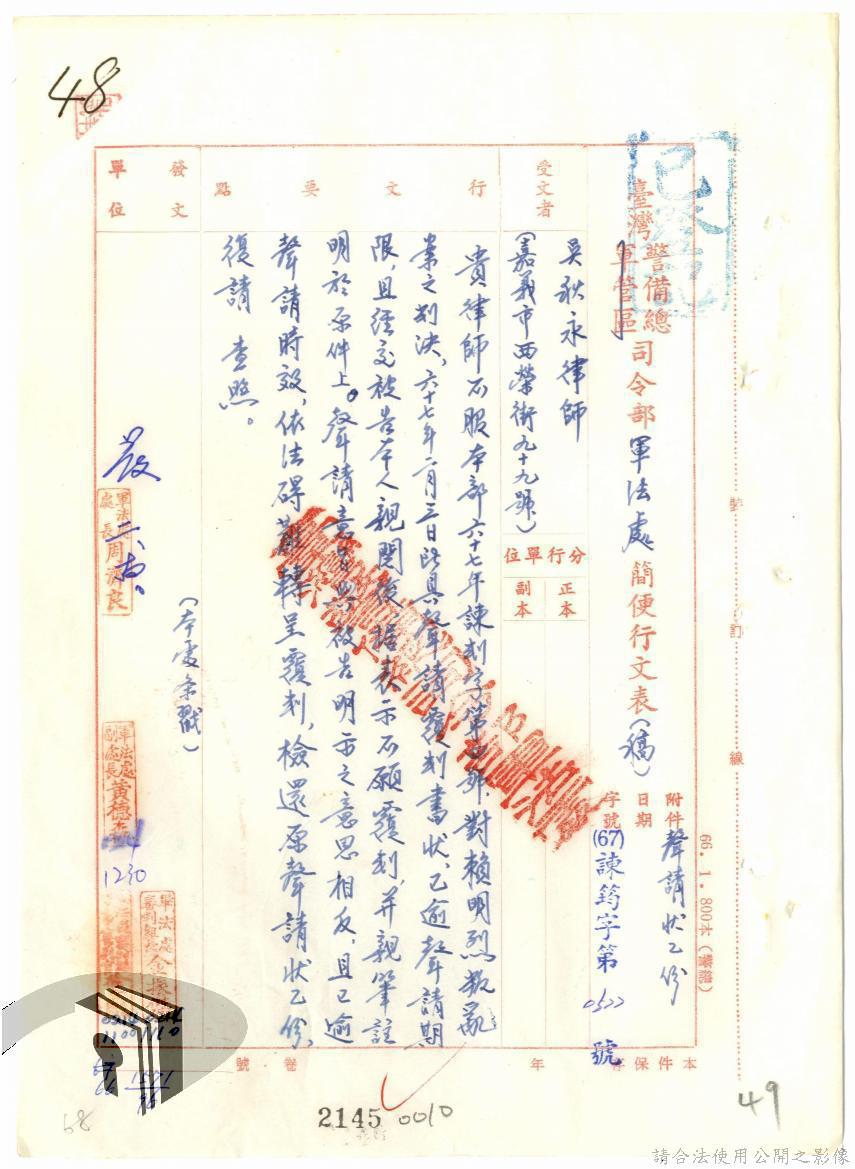 48
已發
臺灣警備總司令部軍管區司令部軍法處簡便行文表(稿)
附件 聲請狀乙份
日期
字號 (67)諫筠字第0522號
66.1.800本
裝
訂
線
本件保存 年
卷 號
受文者
吳秋永律師
(嘉義市西榮街九十九號)
分行單位
正本
副本
行文要點
貴律師不服本部六十七年諫判字第四號對賴明烈叛亂
案之判決,六十七年二月三日所具聲請覆判書狀,已逾聲請期
限,且經交被告本人親閱後據表示不願覆判,并親筆註
明於原件上。聲請意旨與被告明示之意思相反,且已逾
聲請時效,依法礙難轉呈覆判,檢還原聲請狀乙份,
復請 查照。
(本處條戳)
發文單位
發
軍法處處長周濟良
軍法處副處長黃德
1230
軍法處
2145 0010
49
68
請合法使用公開之影像